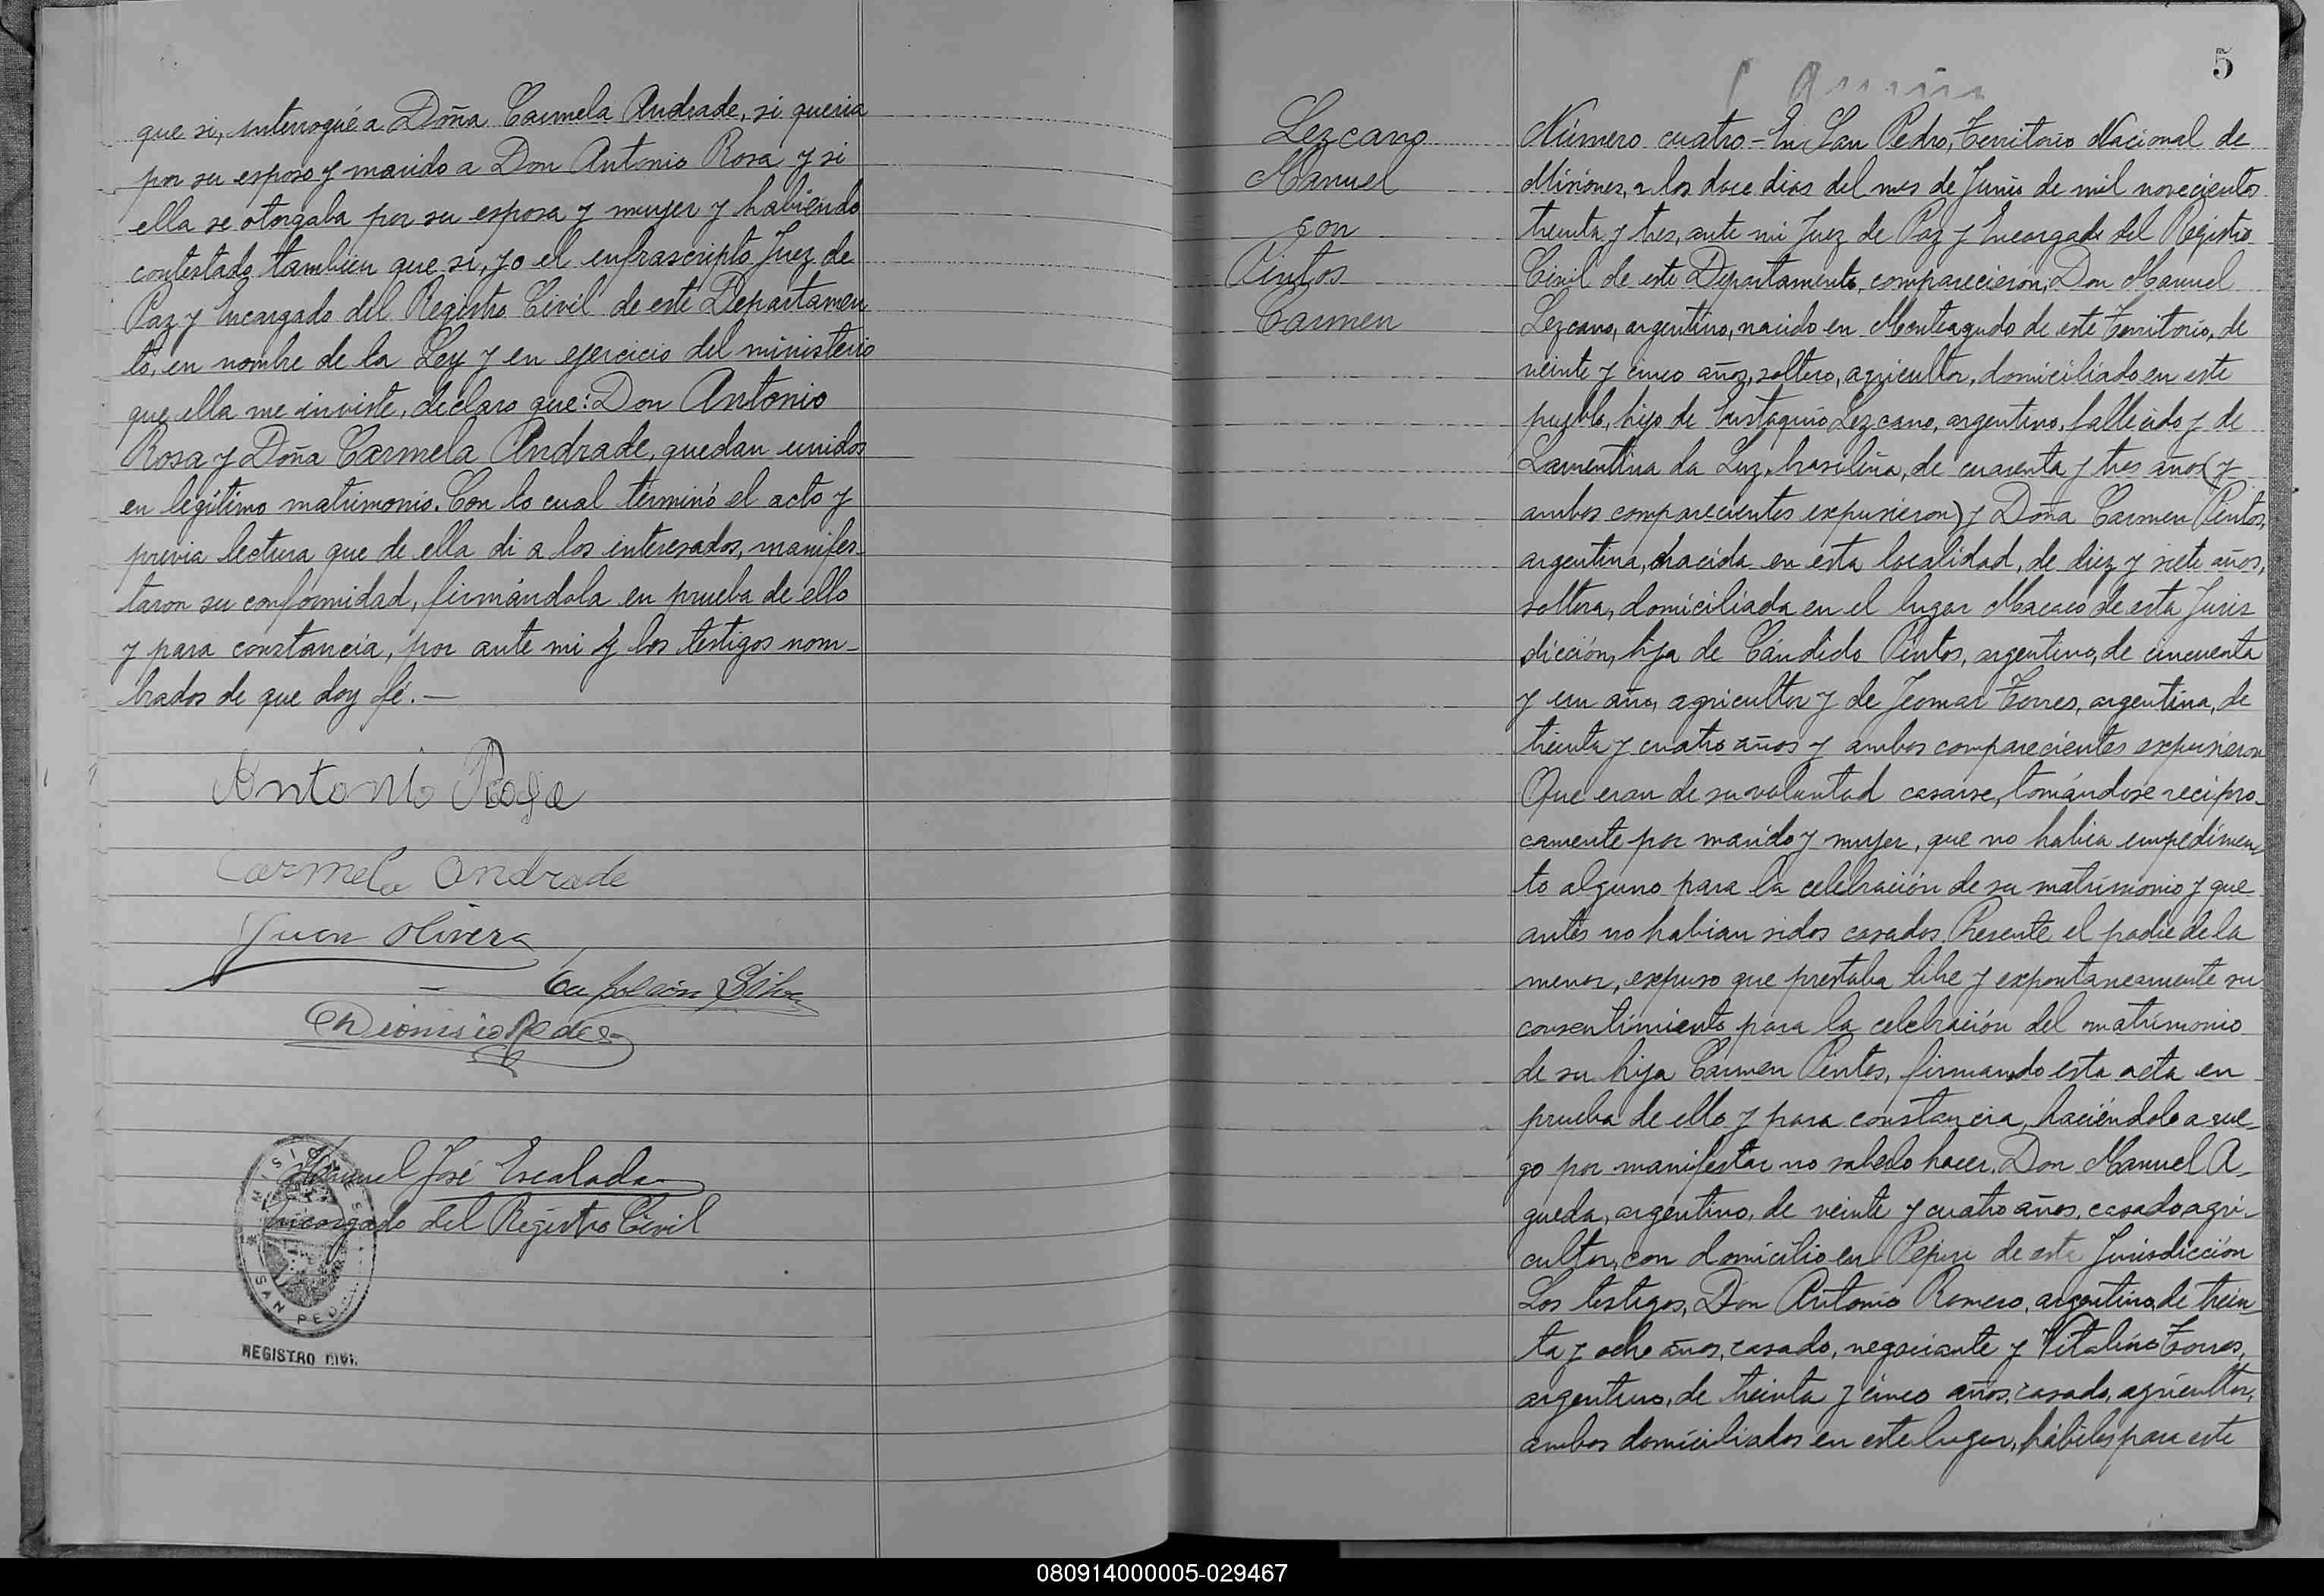 que si, interrogué a Doña Carmela Andrade, si queria
por su esposo y marido a Don Antonio Rosa y si
ella se otorgaba por su esposa y mujer y habiendo
contestado tambien que si, yo el infrascripto Juez de
Paz y Encargado del Registro Civil de este Departamen
to, en nombre de la Ley y en ejercicio del ministerio
que ella me inviste, declaro que: Don Antonio
Rosa y Doña Carmela Andrade, quedan unidos
en legítimo matrimonio. Con lo cual terminó el acto y
previa lectura que de ella di a los interesados, manifes-
taron su conformidad, firmándola en prueba de ello
y para constancia, por ante mi y los testigos nom-
brados de que doy fé.—
Antonio Rosa
Carmela Andrade
Juan Olivera
Silva
Dionisio
Manuel José Escalada
Encargado del Registro Civil
MISIONES
SAN PED
REGISTRO CIVIL
5
Lezcano
Manuel
con
Pintos
Carmen
Número cuatro - En San Pedro, Territorio Nacional de
Misiones, a los doce dias del mes de Junio de mil novecientos
treinta y tres, ante mi Juez de Paz y Encargado del Registro
Civil de este Departamento, comparecieron, Don Manuel
Lezcano, argentino, nacido en Monteagudo de este Territorio, de
veinte y cinco años, soltero, agricultor, domiciliado en este
pueblo, hijo de Eustaquio Lezcano, argentino, fallecido y de
Laurentina da Luz, brasileña, de cuarenta y tres años (y
ambos comparecientes expusieron) y Doña Carmen Pintos,
argentina, nacida en esta localidad, de diez y siete años,
soltera, domiciliada en el lugar Macaco de esta Juris
dicción, hija de Cándido Pintos, argentino, de cincuenta
y un año, agricultor y de Jeomar Torres, argentina, de
treinta y cuatro años y ambos comparecientes expusieron
Que eran de su voluntad casarse, tomándose recipro-
camente por marido y mujer, que no habia impedimen
to alguno para la celebración de su matrimonio y que
antes no habian sidos casados. Presente el padre de la
menor, expuso que prestaba libre y expontaneamente su
consentimiento para la celebración del matrimonio
de su hija Carmen Pintos, firmando esta acta en
prueba de ello y para constancia, haciéndolo a rue-
go por manifestar no saberlo hacer, Don Manuel A-
gueda, argentino, de veinte y cuatro años, casado agri-
cultor, con domicilio en Pepiri de esta Jurisdicción
Los testigos, Don Antonio Romero, argentino, de trein
ta y ocho años, casado, negociante y Vitalino Torres,
argentino, de treinta y cinco años, casado, agricultor,
ambos domiciliados en este lugar, hábiles para este
080914000005-029467